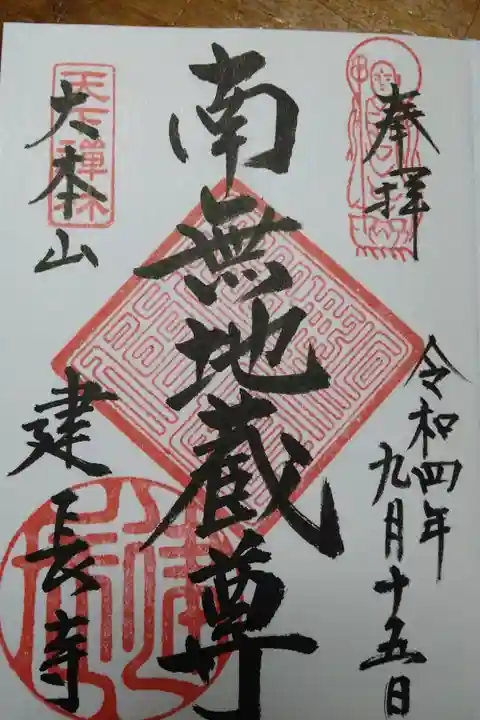 奉拝
令和四年
九月十五日
南無地蔵尊
天下禅林
大本山
建長寺